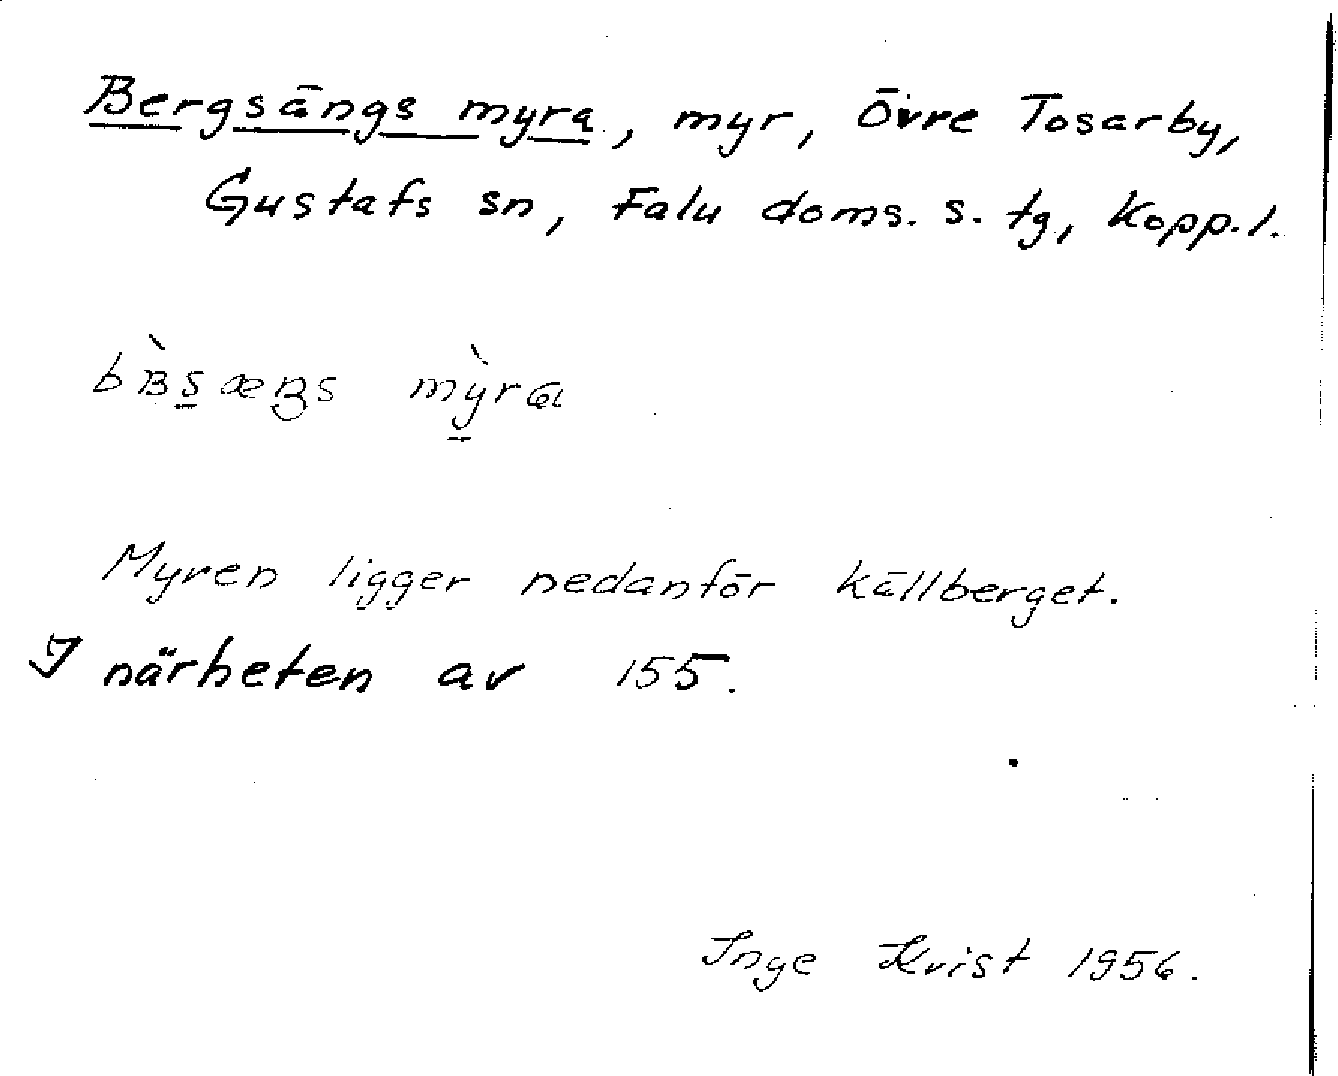 Bergsängs myra, myr, Övre Tosarby,
Gustafs sn, Falu doms. s. tg, Kopp.l.
Myren ligger nedanför källberget.
I närheten av 155.
Inge Kvist 1956.